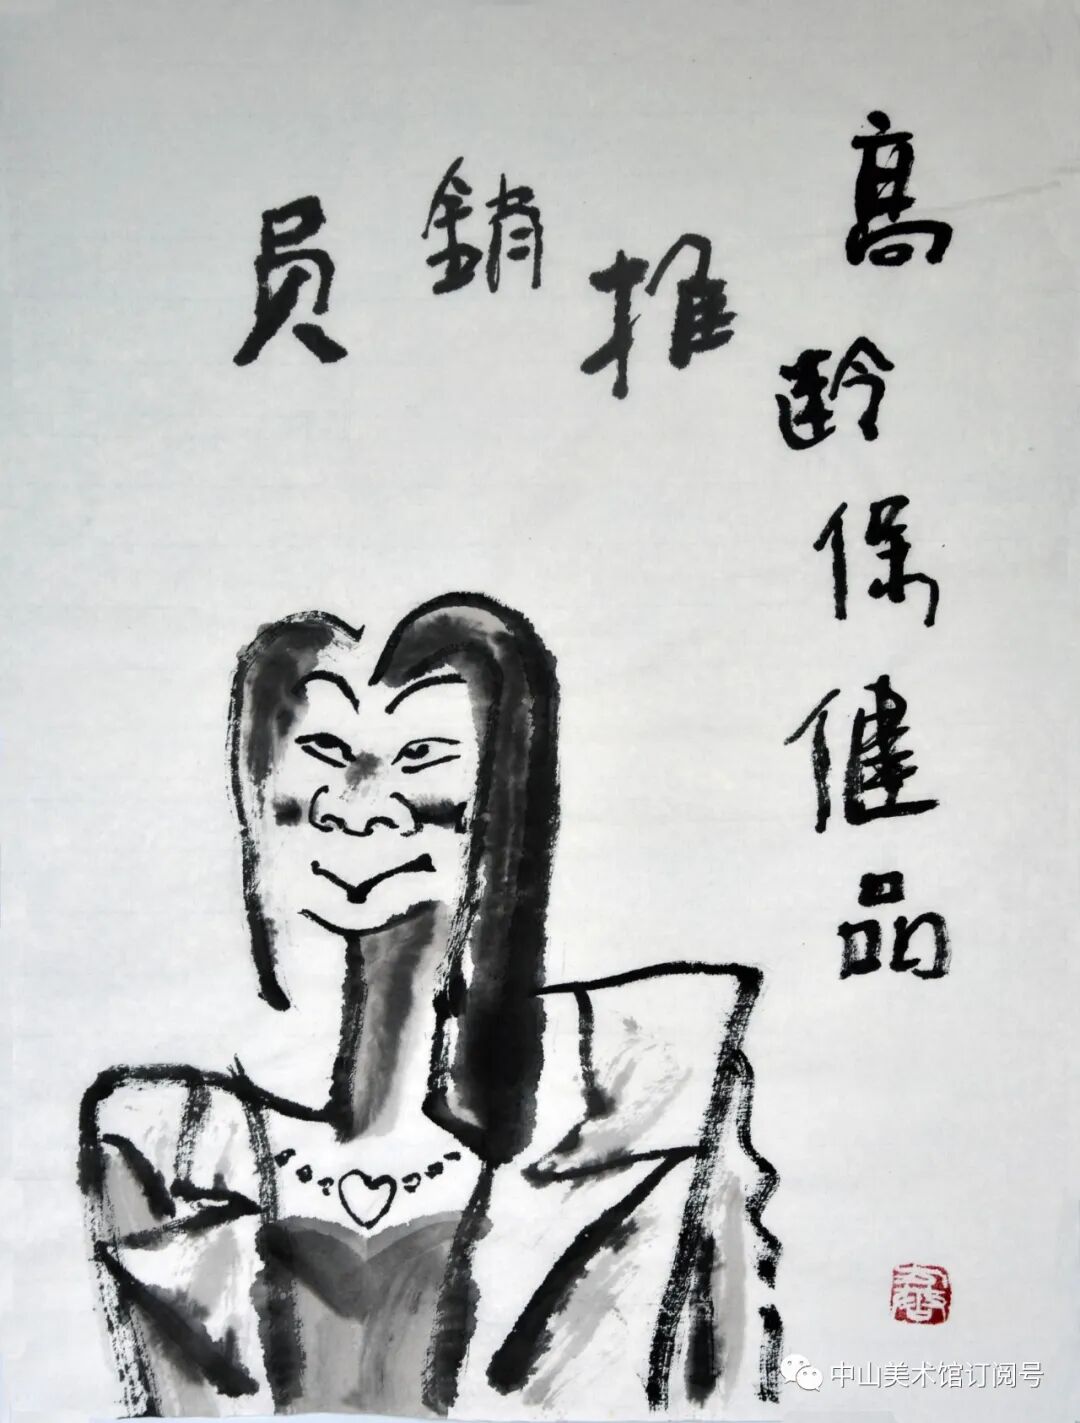 高齡保健品
推銷员
中山美术馆订阅号